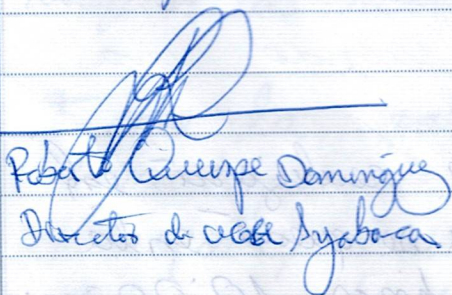 Roberto Quispe Dominguez
Director de UGEL Ayabaca